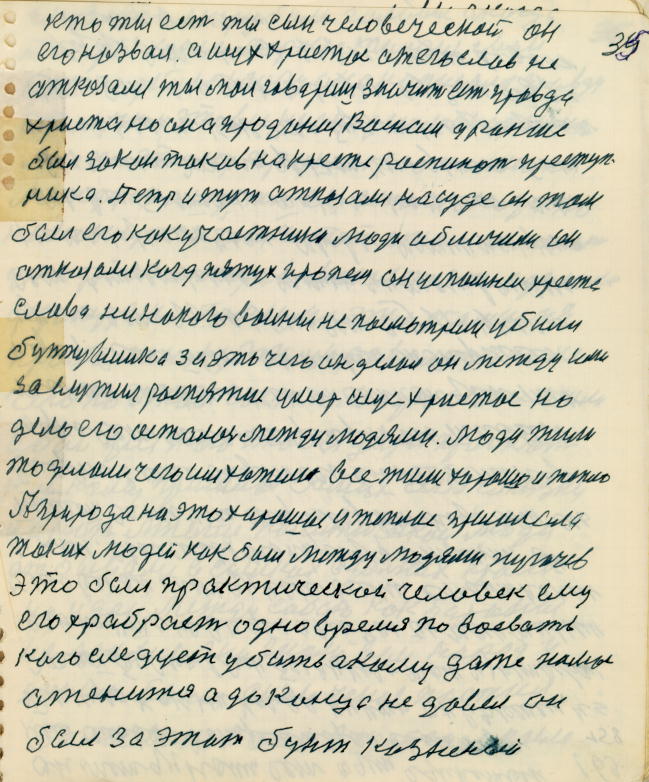 кто ты ест ты сын человеческой он
его назвал. а исух христос от его слов не
отказался ты мои говориш значит ест правда
35
христа но она продана Воинам
был закон таков на кресте распинают преступ-
ника. Петр и тут отказался на суде он там
был его как участника люди обличили он
отказался когд петух пропел он успомнил христа
слова ни на кого воины не посмотрели убили
бунтувшика за это чего он делал он между ими
заслужил распятие умер исус христос но
дело его осталось между людями. Люди жили
то делали чего им хотелос все жили хорошо и тепло
А природа на это хорошое и теплое присылала
таких людей как был между людями пугачев
Это был практической человек ему
его храбраст одно время по воеват
кого следует убить а кому даже
а до конца не довел он
был за этот бунт казненый